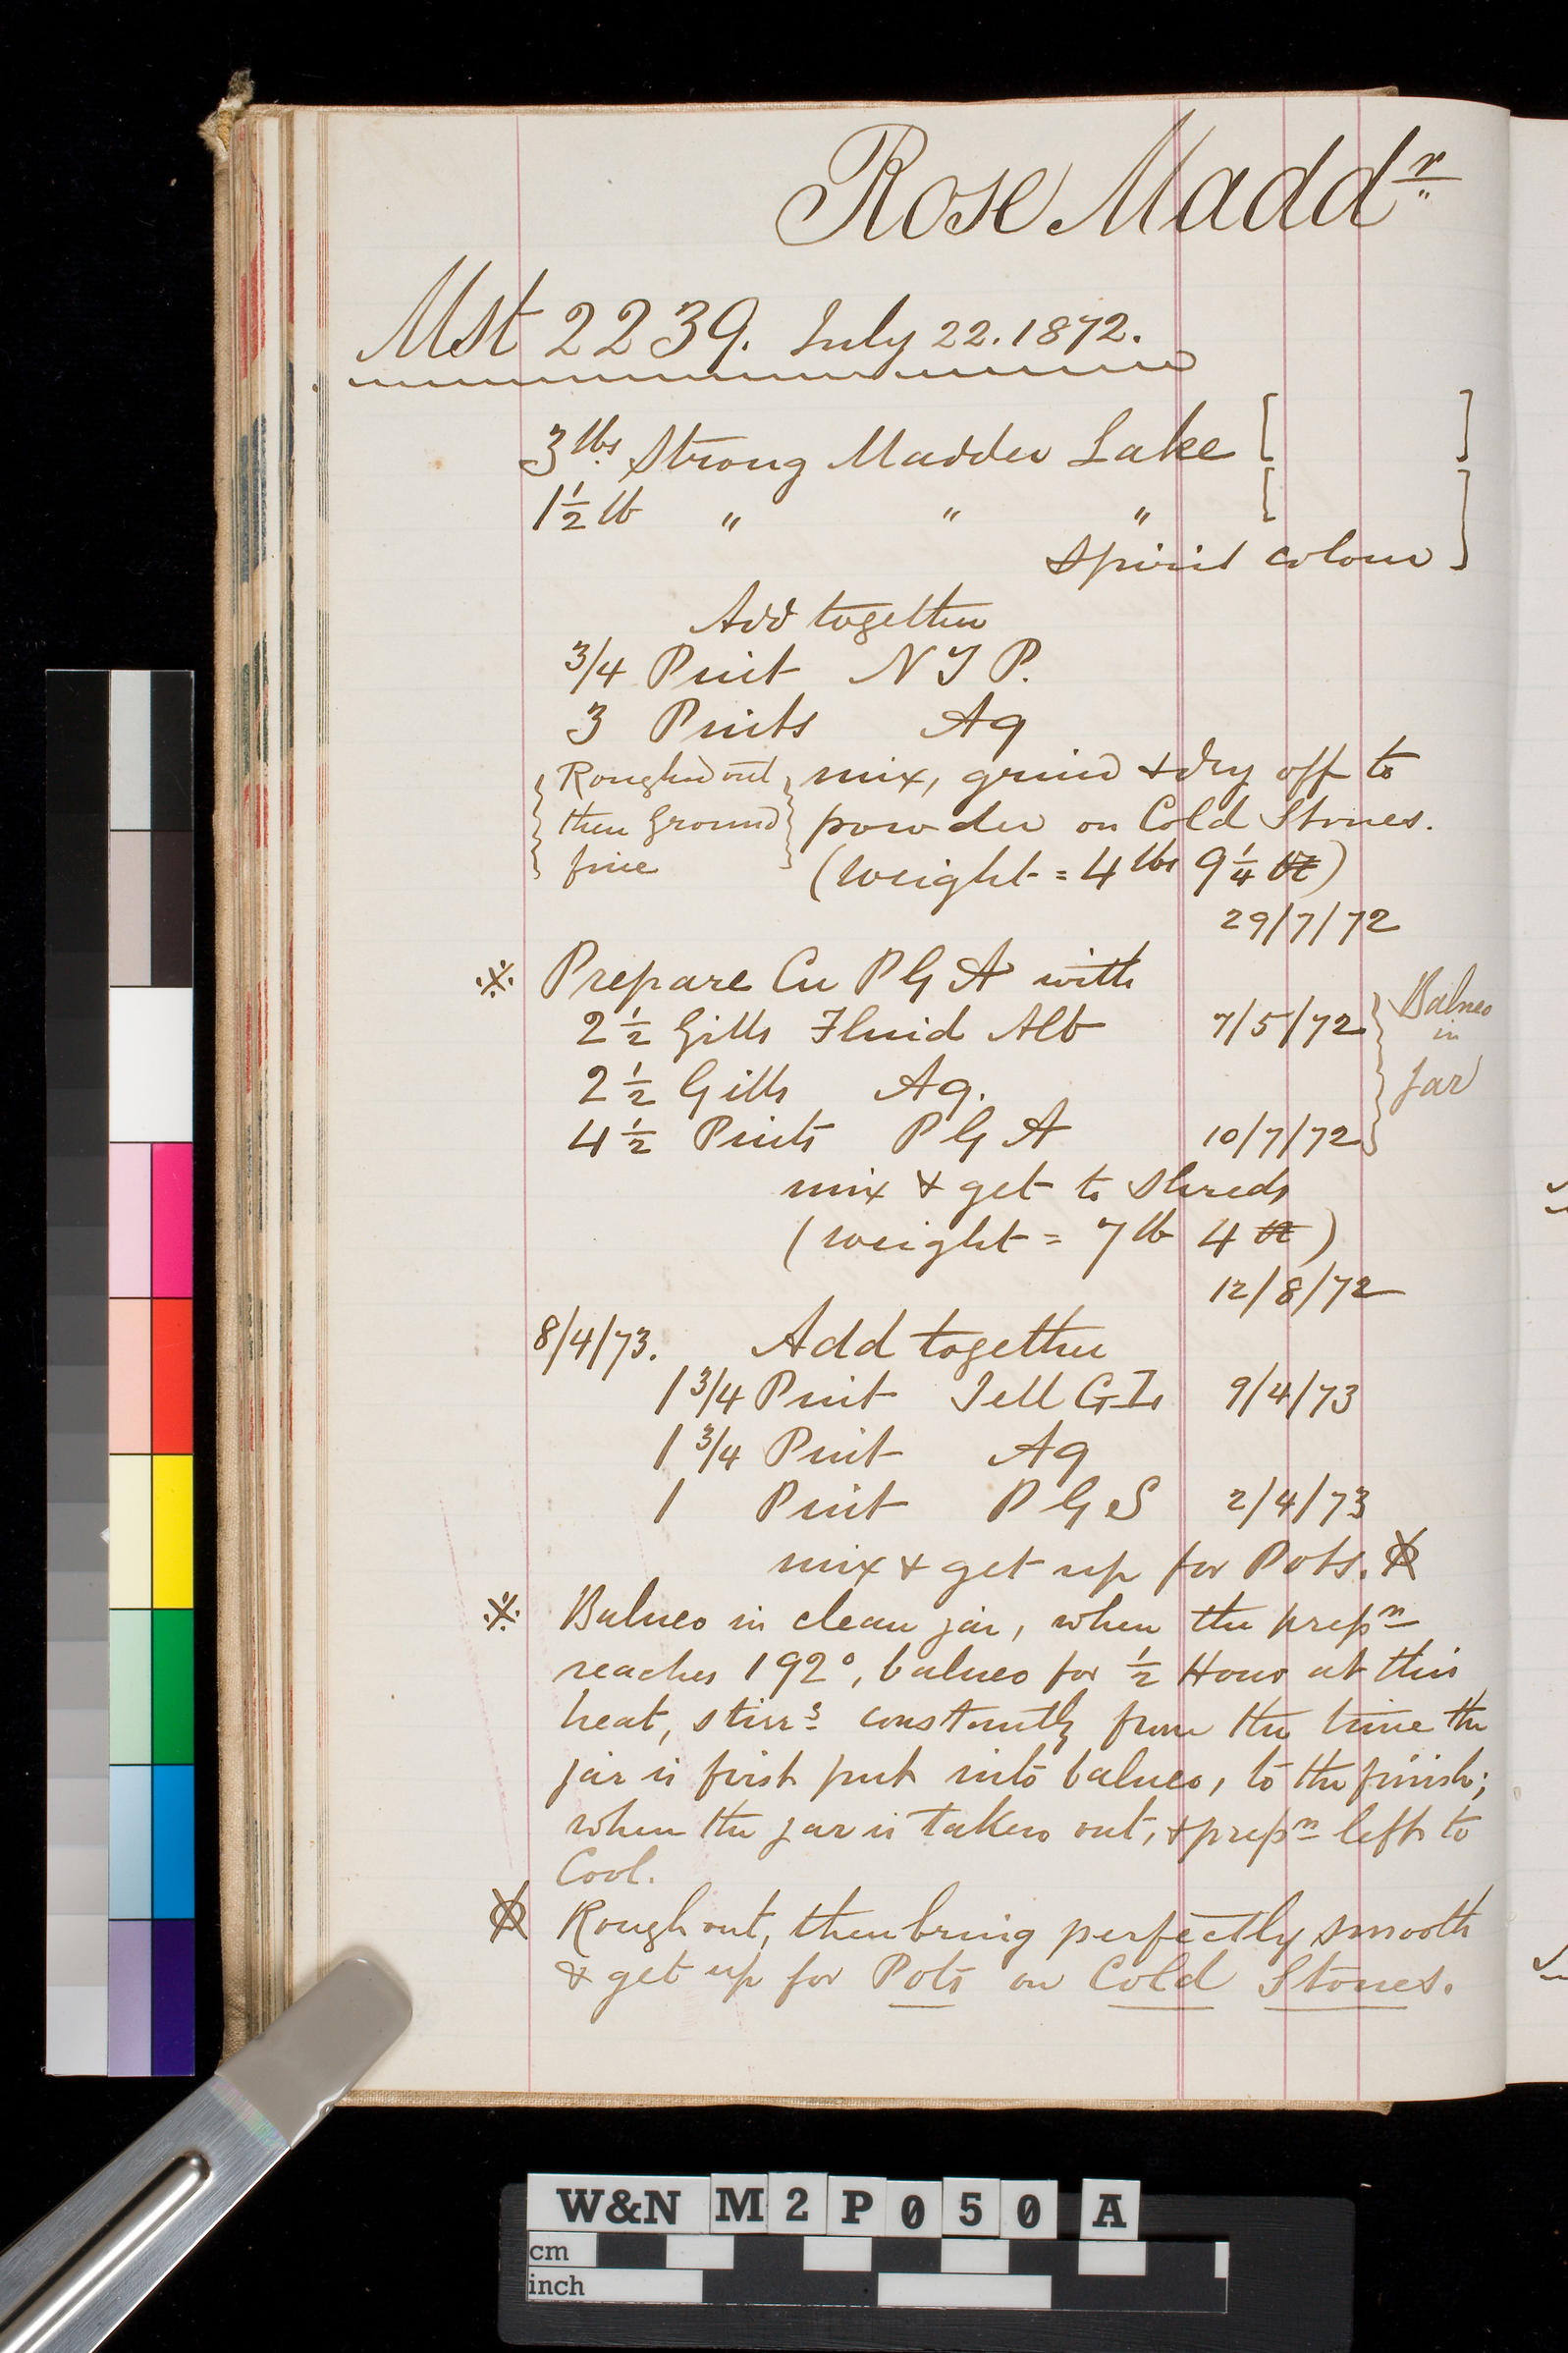 Rose Maddr
Mst 2239. July 22. 1872.
3 lbs Strong Madder Lake [ ]
1 1/2 lb " " " [
Spirit colour ]
Add together
3/4 Pint N J P.
3 Pints Aq
{ Roughed out } mix, grind & dry off to
then Ground powder on Cold Stones.
fine (weight = 4 lbs 9 1/4
29/7/72
※ Prepare Cu P G A with
2 1/2 Gills Fluid Alb 7/5/72 } Balneo
in
2 1/2 Gills Aq. Jar
4 1/2 Pints P G A 10/7/72
mix & get to shreds
(weight = 7 lb 4
12/8/72
8/4/73. Add together
1 3/4 Pint Jell 9/4/73
1 3/4 Pint Aq
1 Pint P G S 2/4/73
mix & get up for Pots.
※ Balneo in clean jar, when the prepn
reaches 192°, balneo for 1/2 Hour at this
heat, stirrg constantly from the time the
jar is first put into balneo, to the finish;
when the jar is taken out, & prepn left to
Cool.
Rough out, then bring perfectly smooth
& get up for Pots on Cold Stones.
W&N M2P050 A
cm
inch